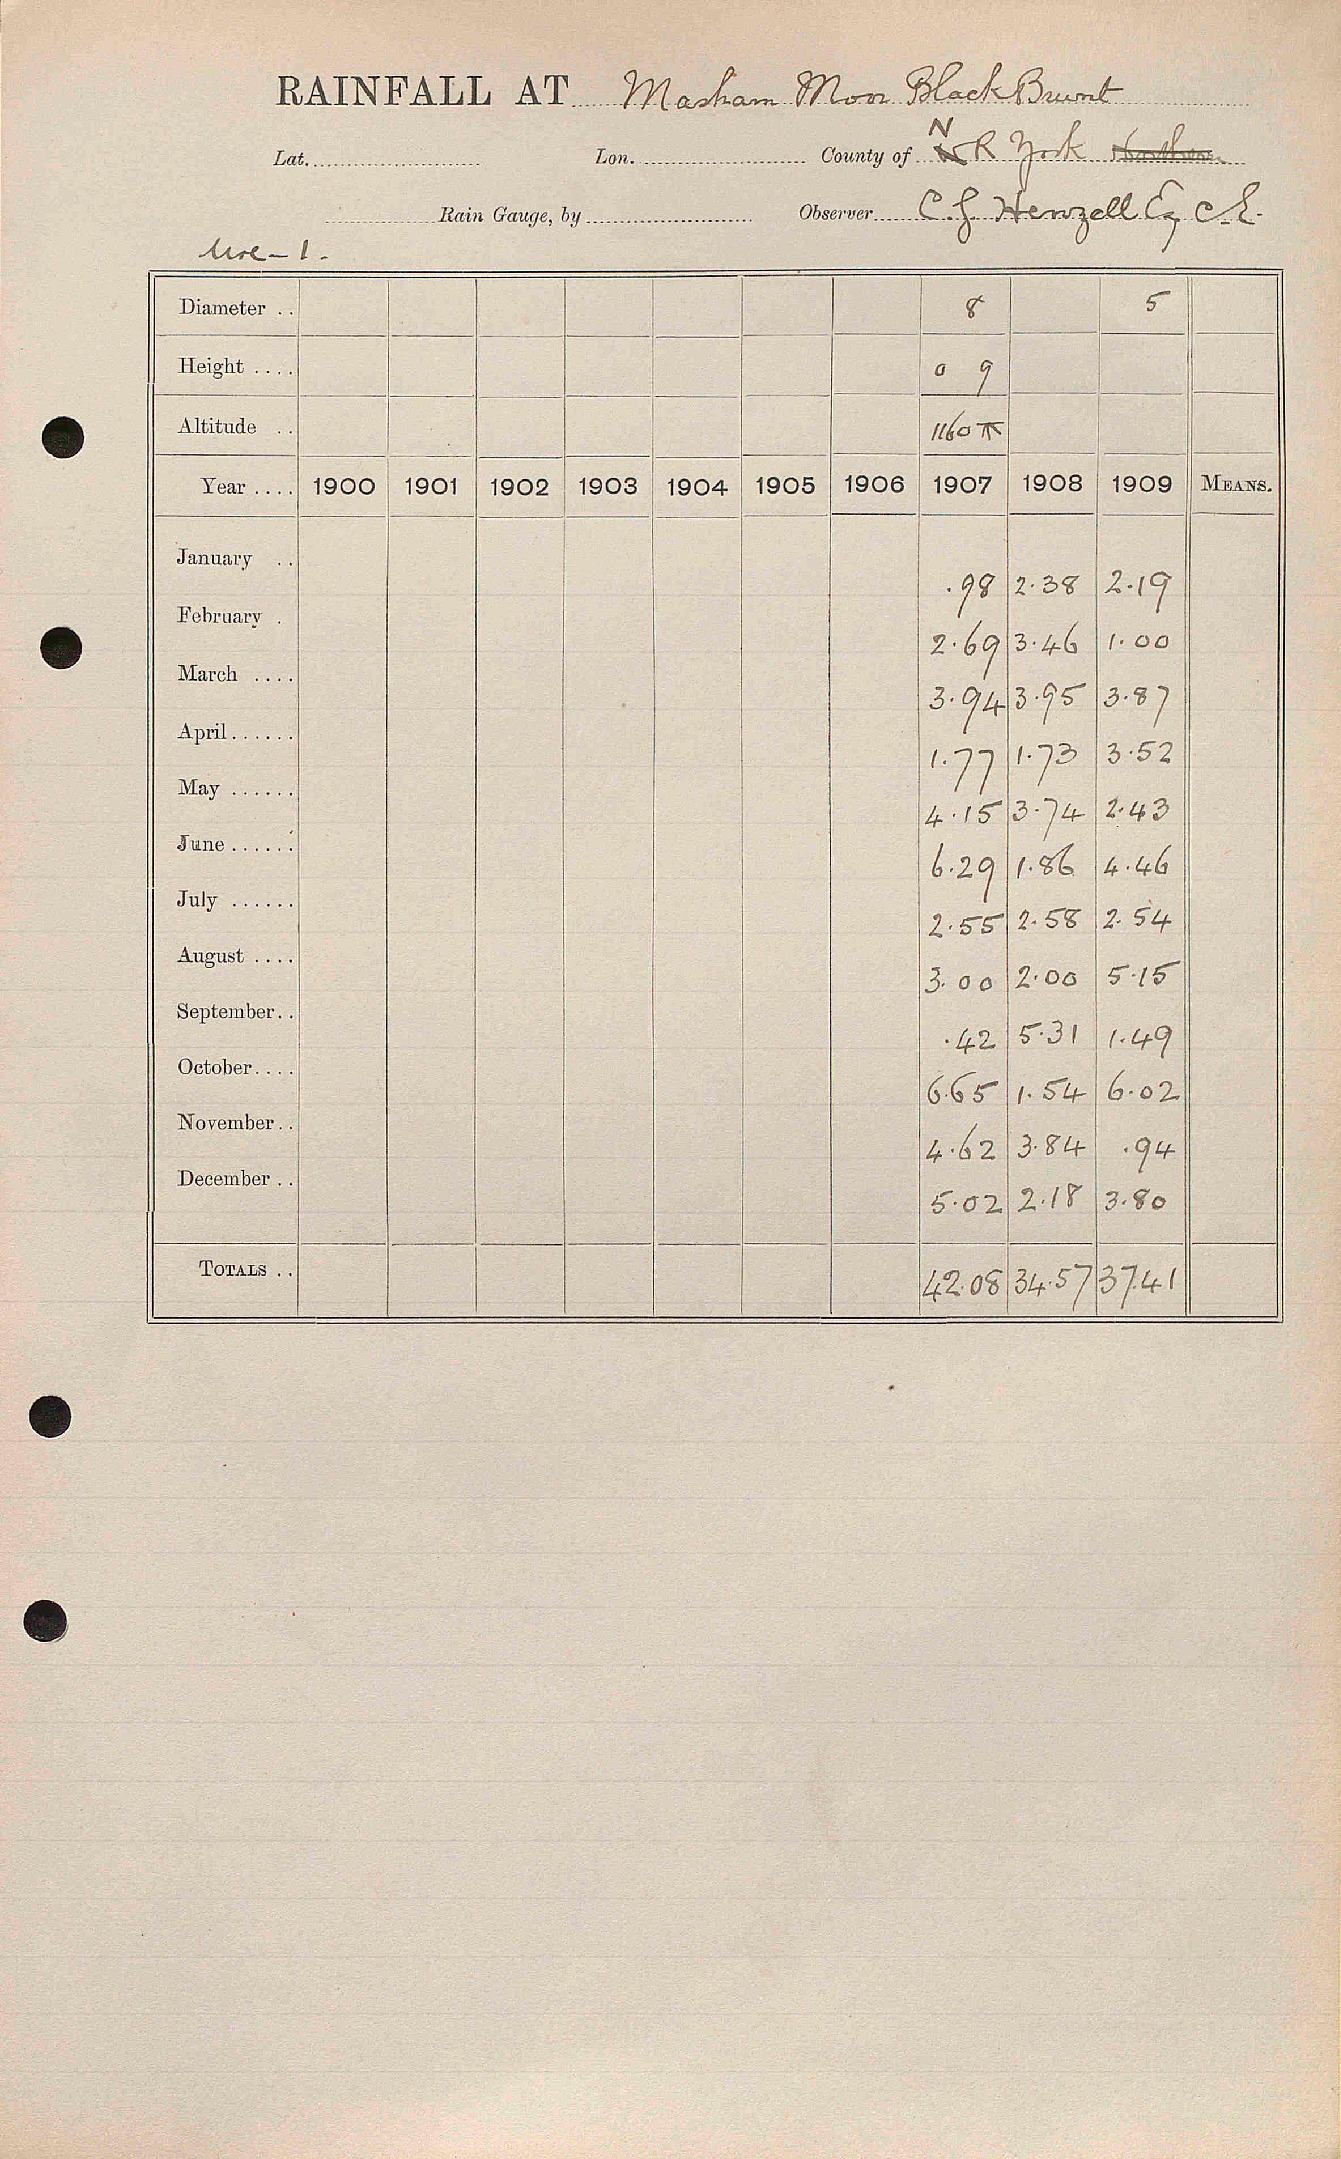 RAINFALL AT Masham Moor Black Brunt
Lat. Lon. County of N R York
Rain Gauge, by Observer C. G. Henzell Esq C.E.
Ure - 1.
Diameter .. 8 5
Height .... 0 9
Altitude .. 1160
Year .... 1900 1901 1902 1903 1904 1905 1906 1907 1908 1909 MEANS.
January .. .98 2.38 2.19
February . 2.69 3.46 1.00
March .... 3.94 3.95 3.87
April...... 1.77 1.73 3.52
May ...... 4.15 3.74 2.43
June ...... 6.29 1.86 4.46
July ...... 2.55 2.58 2.54
August .... 3.00 2.00 5.15
September.. .42 5.31 1.49
October.... 6.65 1.54 6.02
November.. 4.62 3.84 .94
December .. 5.02 2.18 3.80
TOTALS .. 42.08 34.57 37.41